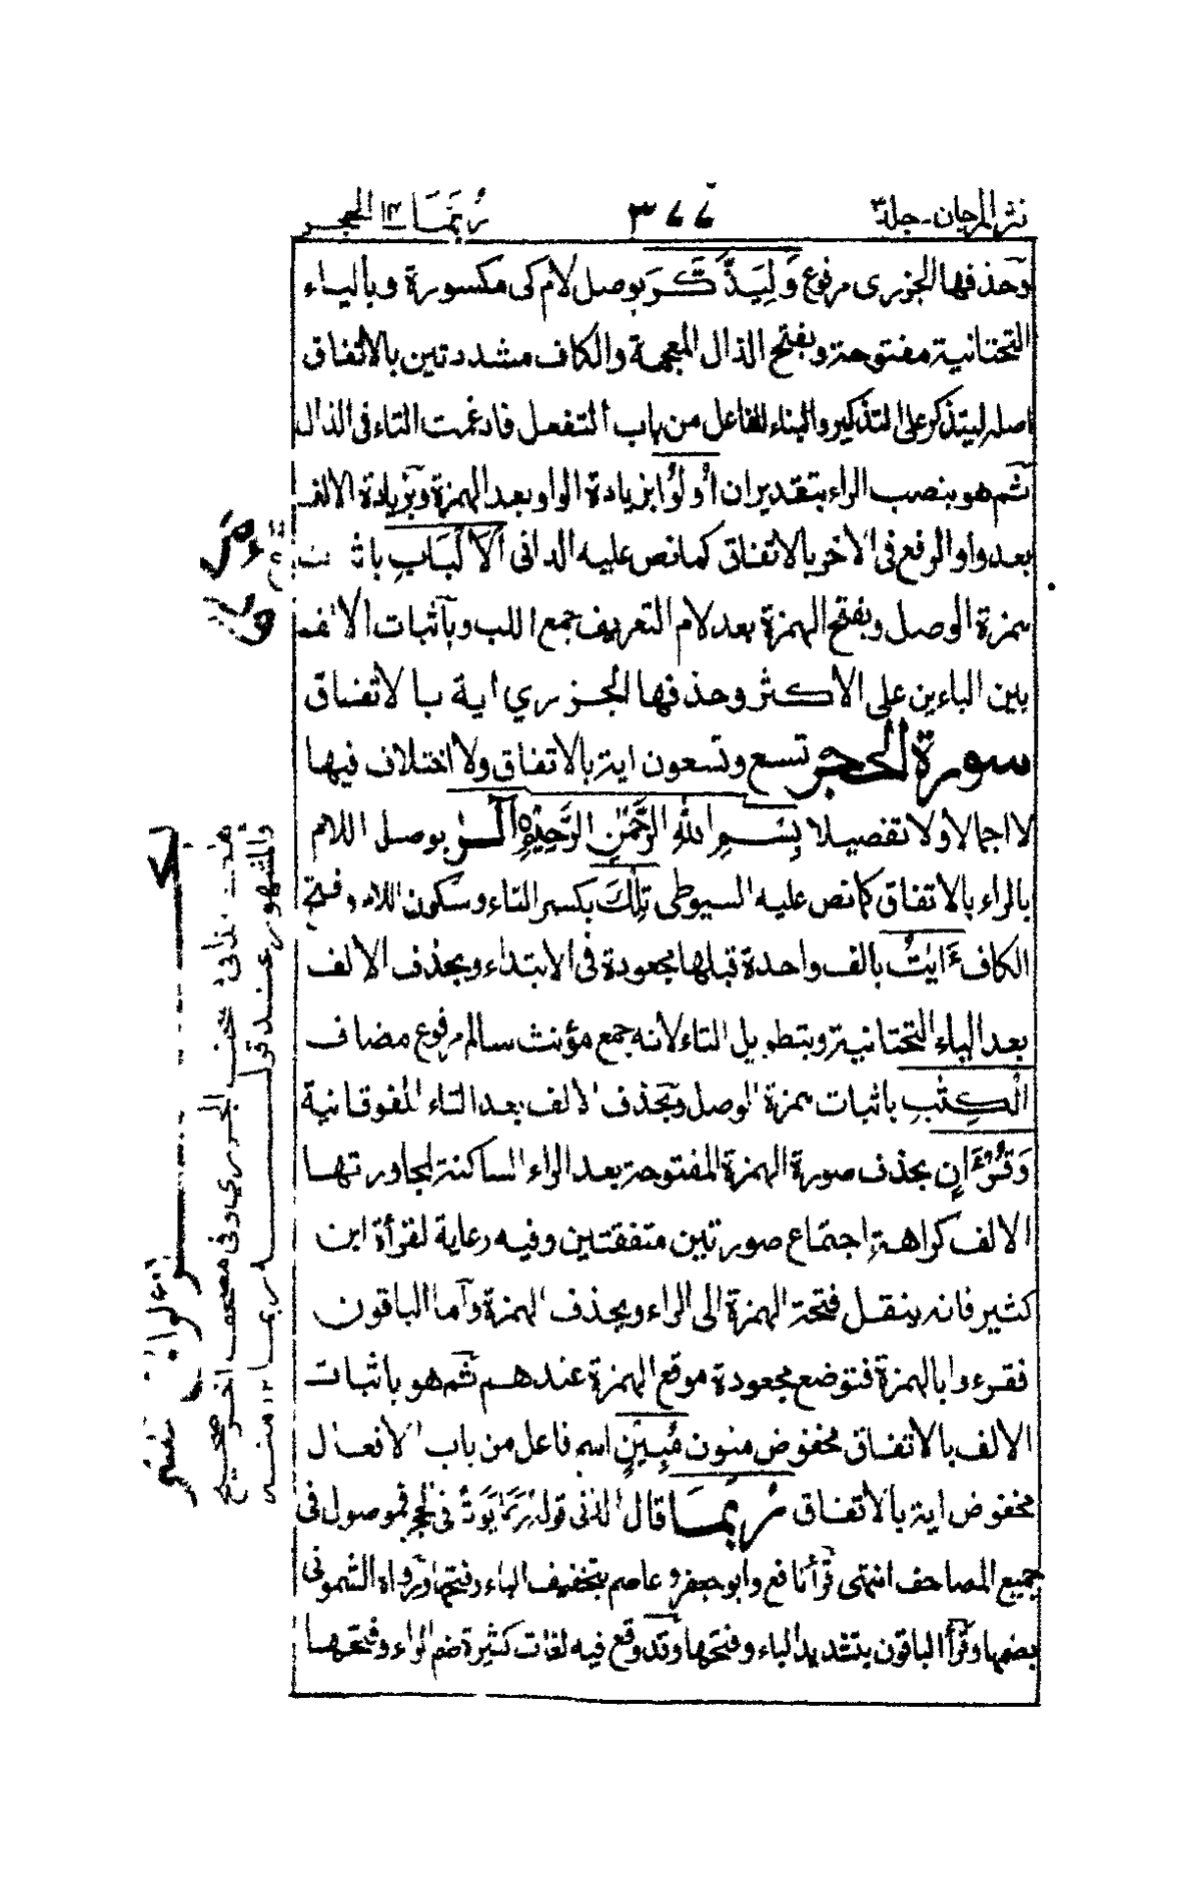 نثر المرجان - جلد ٣
٣٤٤
ربما ١٤ الحجر
وحذفها الجزري مرفوع وَلِيَذَّكَّرَ بوصل لام كى مكسورة وبالياء
التحتانية مفتوحة وبفتح الذال المعجمة والكاف مشددتين بالاتفاق
اصله ليتذكر على التذكير والبناء للفاعل من باب التفعل فادغمت التاء فى الذال
ثم هو بنصب الراء بتقدير ان اُولُوا بزيادة الواو بعد الهمزة وبزيادة الالف
بعد واو الرفع فى الاخر بالاتفاق كما نص عليه الدانى الْاَلْبَابِ باثبات
همزة الوصل وبفتح الهمزة بعد لام التعريف جمع اللب وبآثبات الالف
بين الباءين على الاكثر وحذفها الجزري اية بالاتفاق
سورة الحجر تسع وتسعون اية بالاتفاق ولا اختلاف فيها
لا اجمالا ولا تفصيلا بِسْمِ اللهِ الرَّحْمٰنِ الرَّحِيْمِ الٓرٰ بوصل اللام
بالراء بالاتفاق كما نص عليه السيوطى تِلْكَ بكسر التاء وسكون اللام وفتح
الكاف ءَايٰتُ بالف واحدة قبلها مجعودة فى الابتداء وبحذف الالف
بعد الياء التحتانية وبتطويل التاء لانه جمع مؤنث سالم مرفوع مضاف
الْكِتٰبِ باثبات همزة الوصل وبحذف الالف بعد التاء الفوقانية
وَقُرْءَانٍ بحذف صورة الهمزة المفتوحة بعد الراء الساكنة لمجاورتها
الالف كراهة اجتماع صورتين متفقتين وفيه رعاية لقرأة ابن
كثير فانه ينقل فتحة الهمزة الى الراء ويحذف الهمزة وآما الباقون
فقرءوا بالهمزة فتوضع مجعودة موقع الهمزة عندهم ثم هو باثبات
الالف بالاتفاق مخفوض منون مُبِيْنٍ اسم فاعل من باب الافعال
مخفوض اية بالاتفاق رُبَمَا قال الدانى قوله رُبَمَا يَوَدُّ فى الحجر فموصول فى
جميع المصاحف انتهى قرأ نافع وابو جعفر وعاصم بتخفيف الباء وفتحها وروٰاه الشمونى
بضمها وقرأ الباقون بتشديد الباء وفتحها وقد وقع فيه لغات كثيرة ضم الراء وفتحها
والمشهور عند قو
الجزري وفى مصحف اخر صحيح